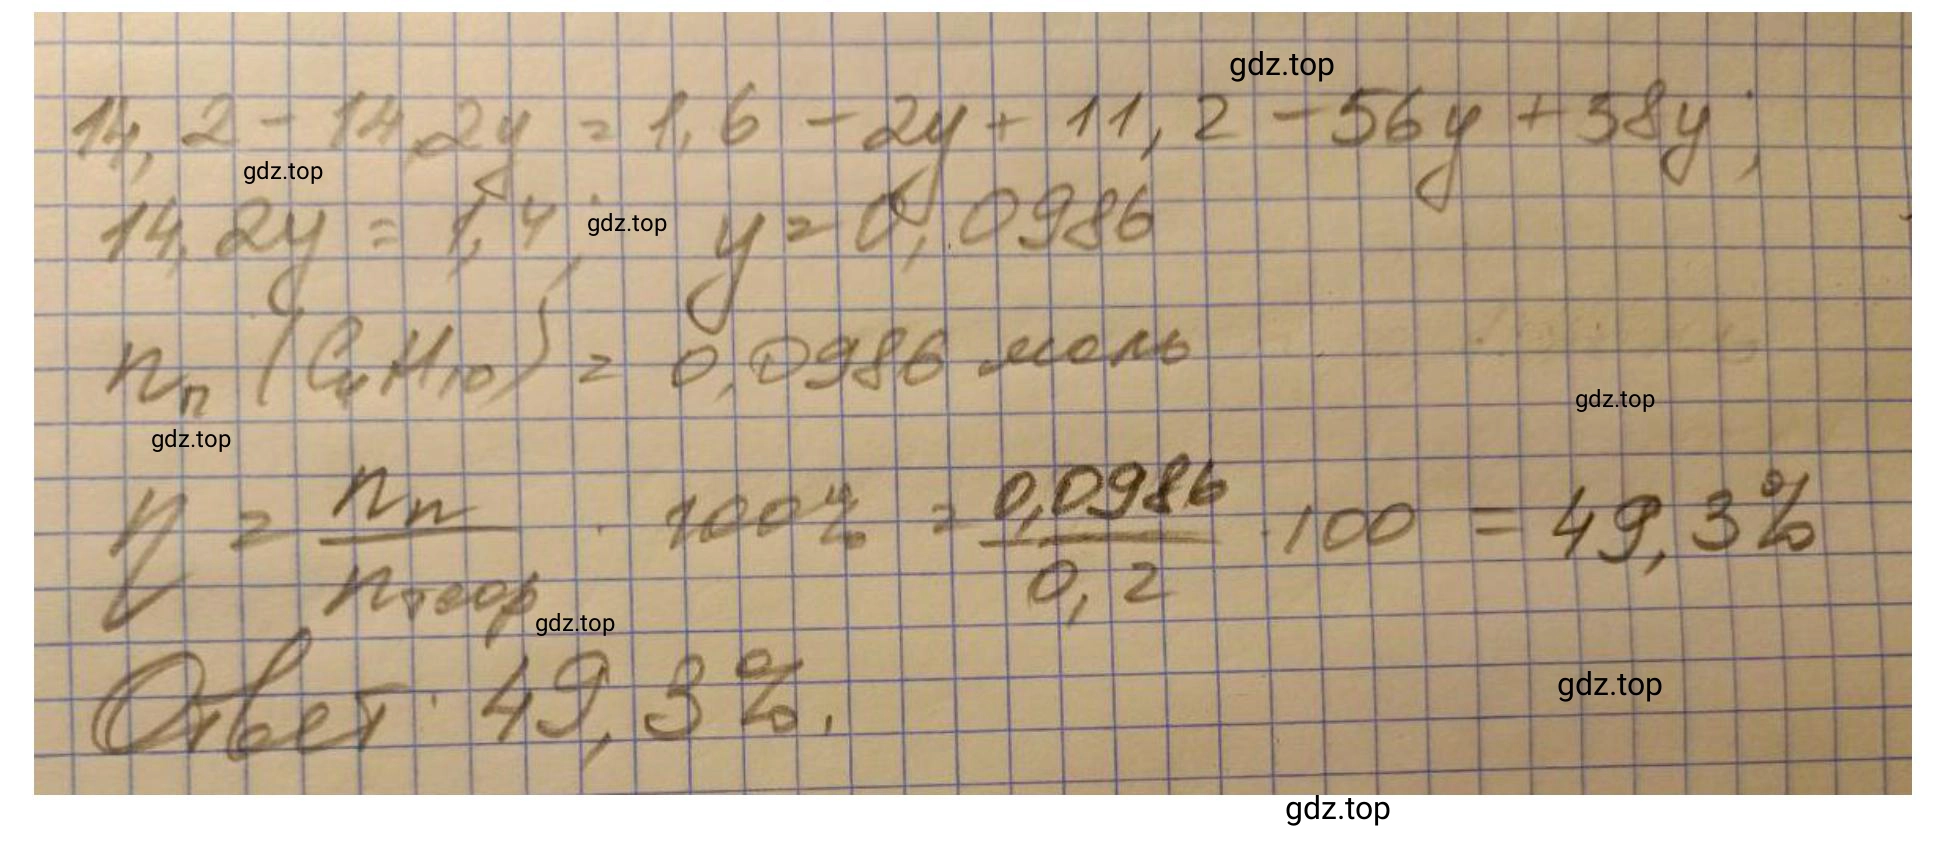 gdz.top
14,2 - 14,2y = 1,6 - 2y + 11,2 - 56y + 58y;
gdz.top
14,2y = 1,4; y = 0,0986
gdz.top
nп (C₄H₁₀) = 0,0986 моль
gdz.top
gdz.top
η = nп / nтеор · 100% = 0,0986 / 0,2 · 100 = 49,3%
gdz.top
Ответ: 49,3%.
gdz.top
gdz.top